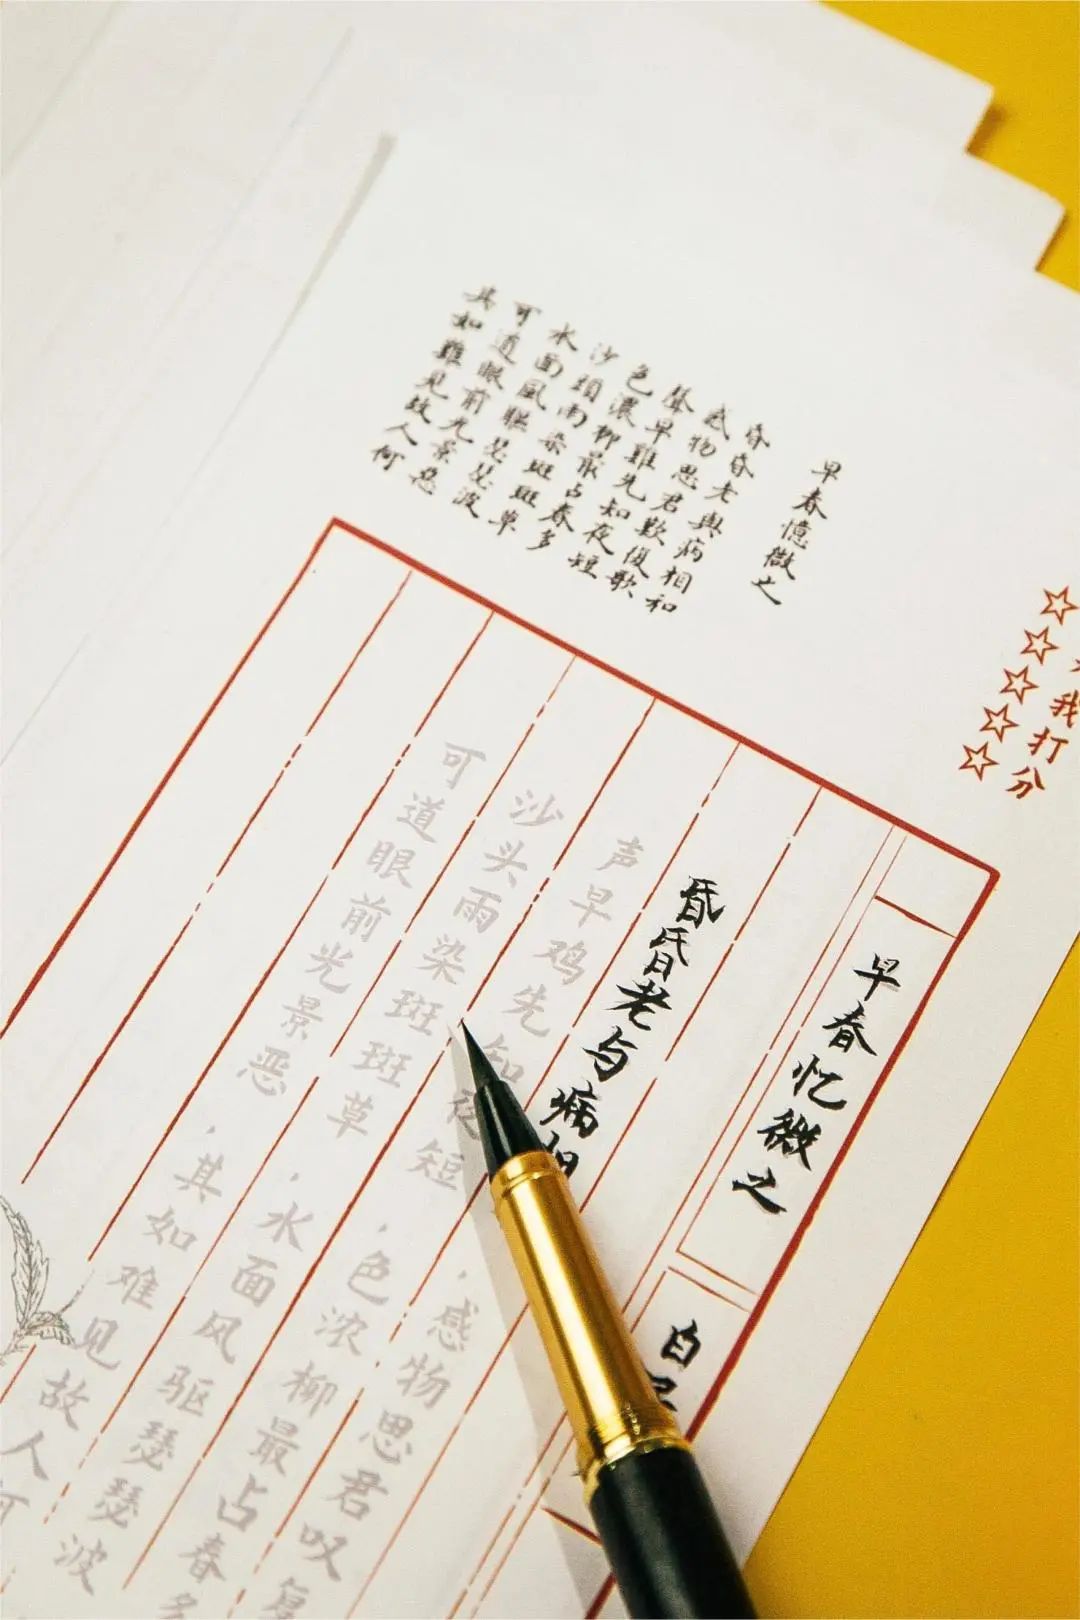 我打分
早春憶微之
昏昏老與病相和
感物思君歎復歌
聲早雞先知夜短
色濃柳最占春多
沙頭雨染斑斑草
水面風驅瑟瑟波
可道眼前光景惡
其如難見故人何
早春忆微之
白
昏昏老与病相，感物思君叹复
声早鸡先知夜短，色浓柳最占春多
沙头雨染斑斑草，水面风驱瑟瑟波
可道眼前光景恶，其如难见故人